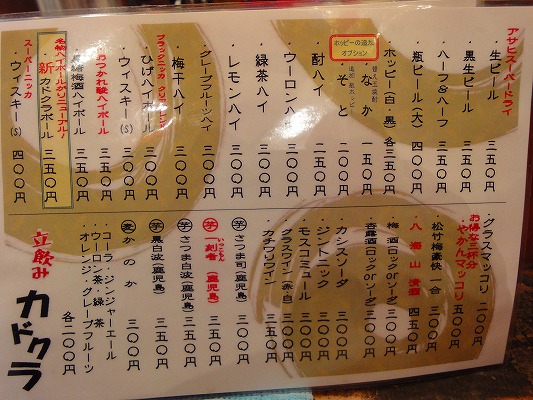 アサヒスーパードライ
・生ビール 三五〇円
・黒生ビール 三五〇円
・ハーフ&ハーフ 三五〇円
・瓶ビール(大) 四〇〇円
・ホッピー(白・黒) 各三五〇円
ホッピーの追加オプション
・なか 一五〇円
追加 瓶ホッピー
・そと 二〇〇円
・酎ハイ 二五〇円
・ウーロンハイ 三〇〇円
・緑茶ハイ 三〇〇円
・レモンハイ 三〇〇円
・グレープフルーツハイ 三〇〇円
・梅干ハイ 三〇〇円
ブラックニッカ クリアブレンド
・ひげハイボール 三〇〇円
・ウィスキー(S) 三〇〇円
おつかれ酸ハイボール
・梅梅酒ハイボール 三五〇円
名物ハイボールがリニューアル!
・新カドクラボール 三五〇円
スーパーニッカ
・ウィスキー(S) 四〇〇円
・グラスマッコリ 二〇〇円
お得な三杯分
・やかんマッコリ 五〇〇円
・松竹梅豪快 一合 三〇〇円
・八海山 清酒 四五〇円
・梅酒(ロックorソーダ) 三〇〇円
・杏露酒(ロックorソーダ) 三〇〇円
・カシスソーダ 三〇〇円
・ジントニック 三〇〇円
・モスコミュール 三〇〇円
・グラスワイン(赤・白) 三〇〇円
・カチワリワイン 三〇〇円
芋 さつま司(鹿児島) 三〇〇円
芋 一刻者(鹿児島) 三五〇円
いっこもん
芋 さつま白波(鹿児島) 三五〇円
芋 黒白波(鹿児島) 三五〇円
麦 かのか 三〇〇円
・コーラ・ジンジャーエール
・ウーロン茶・緑茶
・オレンジ・グレープフルーツ 各二〇〇円
立飲み カドクラ